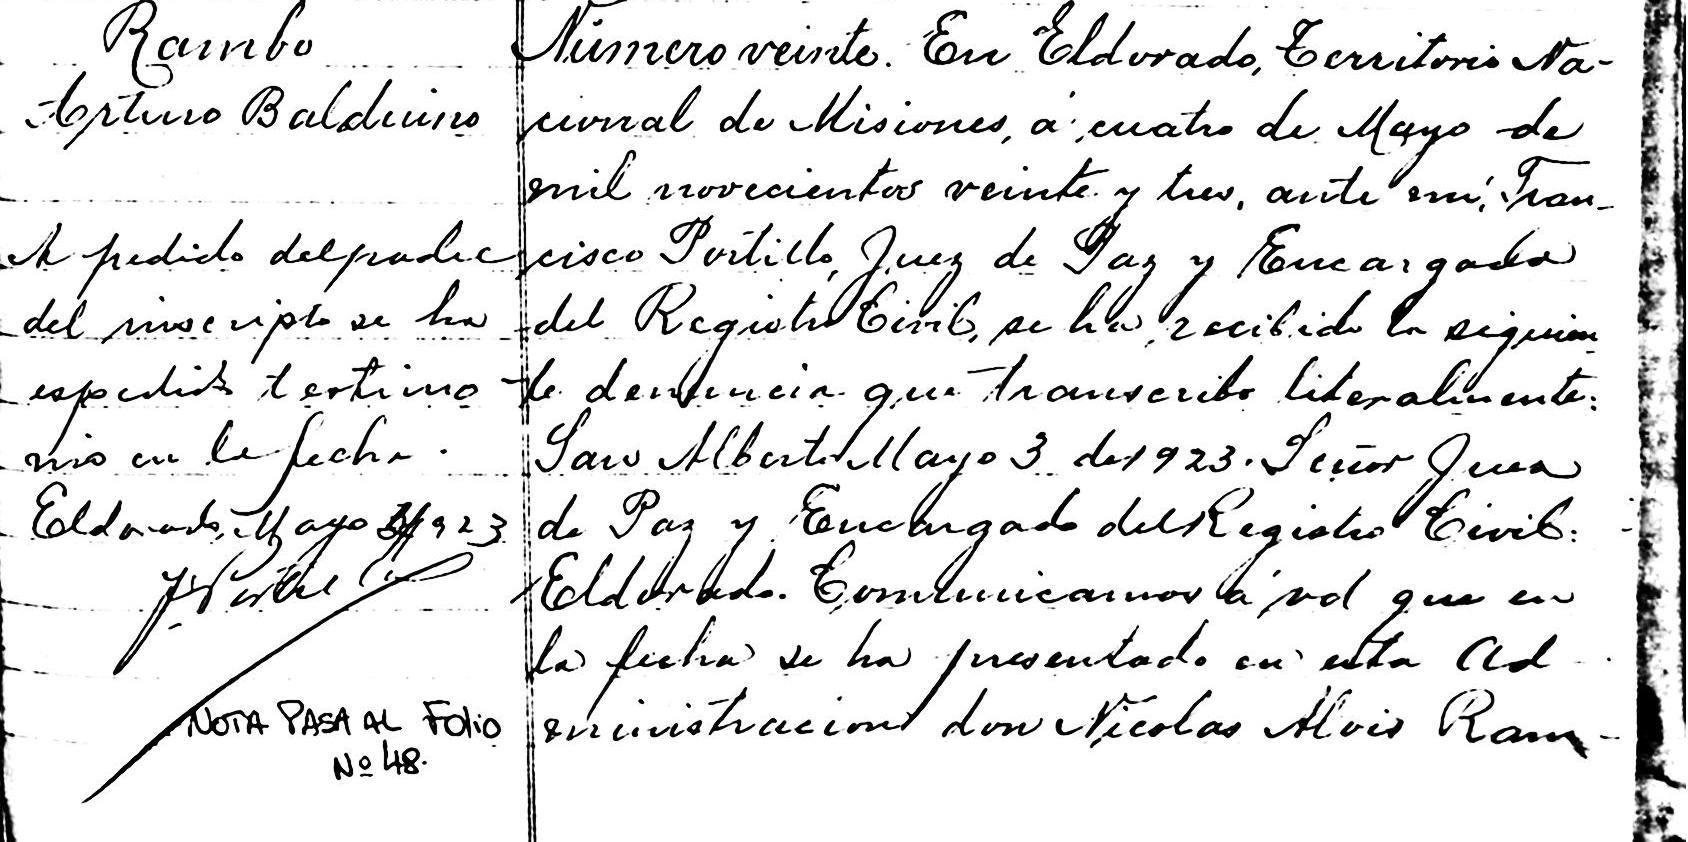 Rambo
Arturo Balduino
A pedido del padre
del inscripto se ha
espedido testimo
nio en la fecha.
Eldorado, Mayo 1923
NOTA PASA AL FOLIO
Nº 48.
Número veinte. En Eldorado, Territorio Na-
cional de Misiones, á cuatro de Mayo de
mil novecientos veinte y tres, ante mí, Fran-
cisco Portillo, Juez de Paz y Encargado
del Registro Civil, se ha recibido la siguien
te denuncia que transcribo literalmente:
San Alberto Mayo 3 de 1923. Señor Juez
de Paz y Encargado del Registro Civil:
Eldorado. Comunicamos á vd que en
la fecha se ha presentado en esta Ad
ministracion don Nicolas Alois Ram-